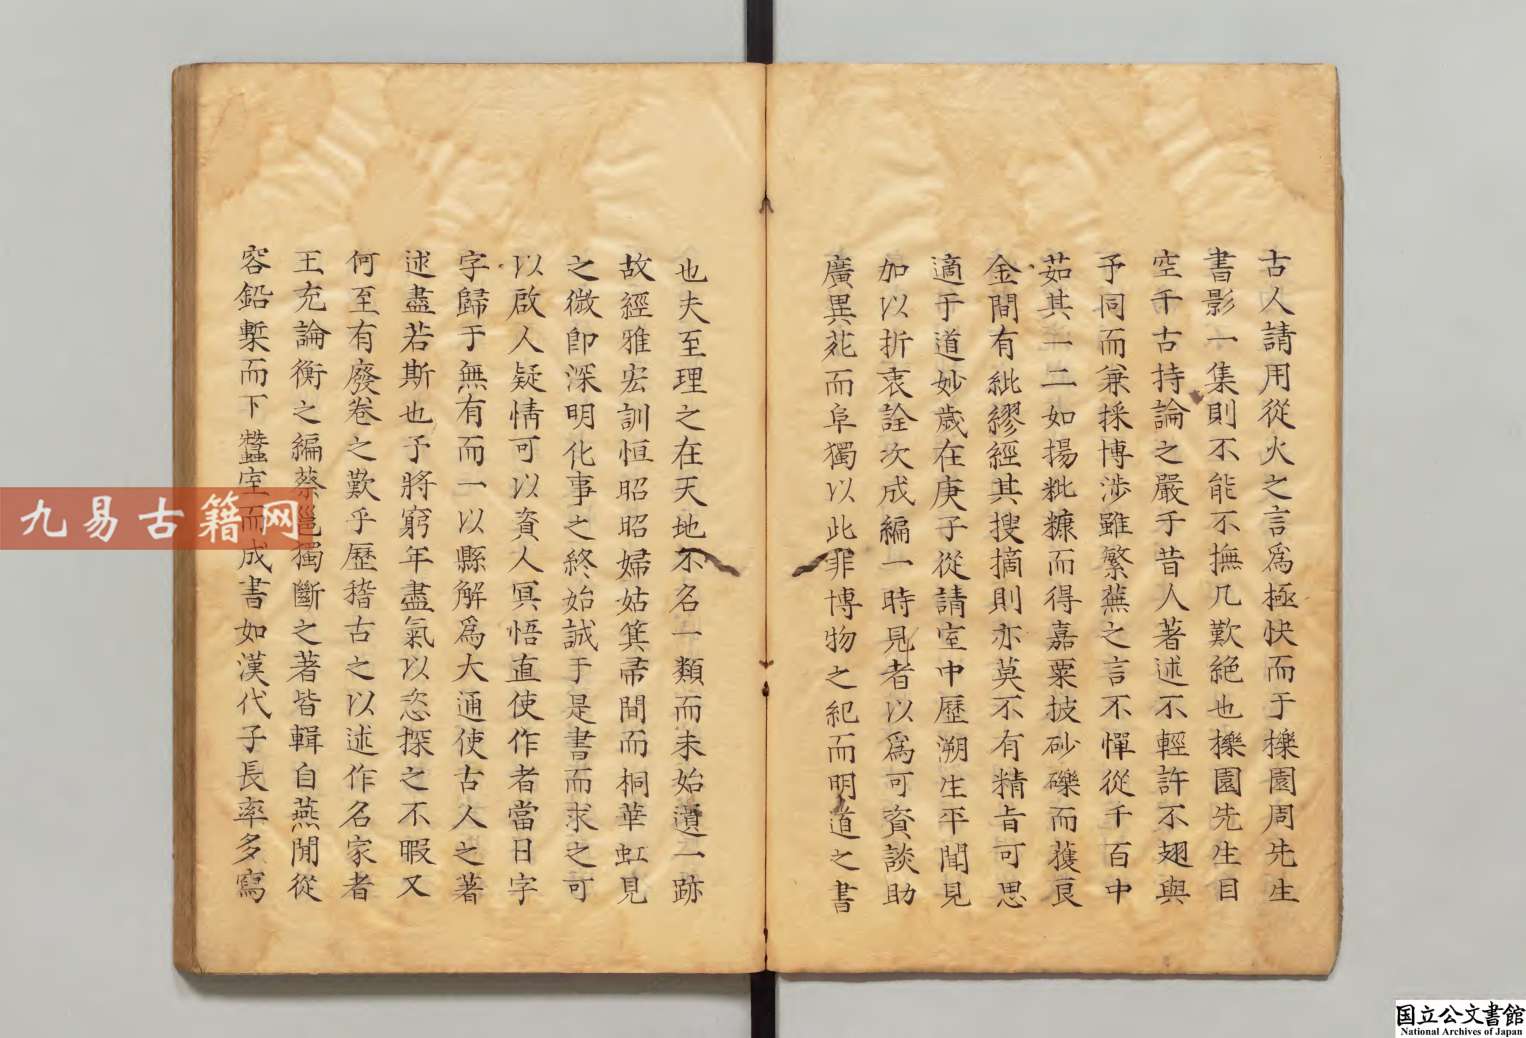 古人請用從火之言爲極快而于櫟園周先生
書影一集則不能不撫几歎絕也櫟園先生目
空千古持論之嚴于昔人著述不輕許不翅與
予同而兼採博涉雖繁蕪之言不憚從千百中
茹其一二如揚粃糠而得嘉粟披砂礫而獲良
金間有紕繆經其搜摘則亦莫不有精旨可思
適于道妙歲在庚子從請室中歷溯生平聞見
加以折衷詮次成編一時見者以爲可資談助
廣異苑而阜獨以此非博物之紀而明道之書
也夫至理之在天地不名一類而未始遺一跡
故經雅宏訓恒昭昭婦姑箕帚間而桐華虹見
之微卽深明化事之終始誠于是書而求之可
以啟人疑情可以資人冥悟直使作者當日字
字歸于無有而一以縣解爲大通使古人之著
述盡若斯也予將窮年盡氣以恣探之不暇又
何至有廢卷之歎乎歷稽古之以述作名家者
王充論衡之編蔡邕獨斷之著皆輯自燕閒從
容鉛槧而下蠶室而成書如漢代子長率多寫
九易古籍网
国立公文書館
National Archives of Japan